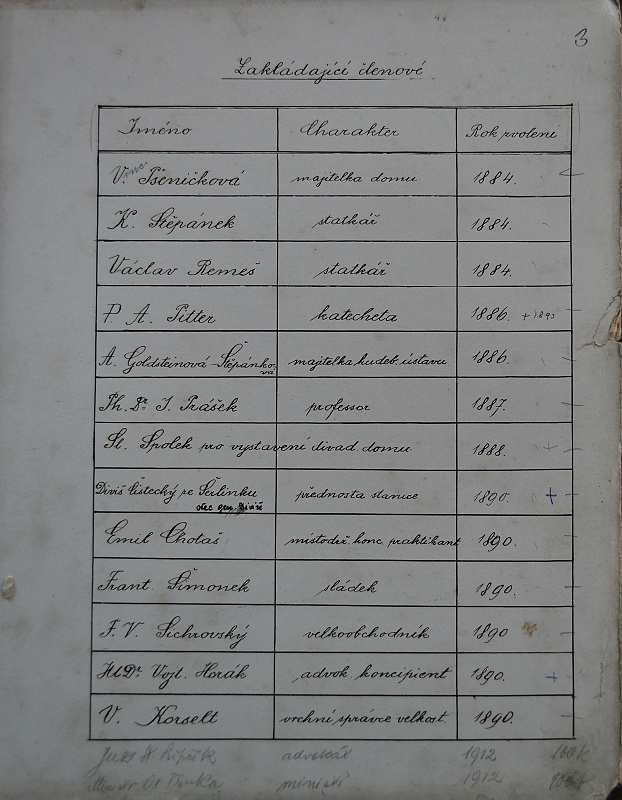 3
Zakládající členové
Jméno Charakter Rok zvolení
V. Pšeničková majitelka domu 1884.
K. Štěpánek statkář 1884.
Václav Remeš statkář 1884.
P. A. Pitter katecheta 1886. +
A. Goldsteinová-Štěpánko-
vá majitelka hudeb. ústavu 1886.
Ph. Dr. J. Prášek professor 1887.
Sl. Spolek pro vystavení divad. domu 1888. +
Diviš Čistecký ze Šerlinku přednosta stanice 1890. +
otec gen.
Emil Chotaš místodrž. konc. praktikant 1890.
Frant. Šimonek sládek 1890.
F. V. Sichrovský velkoobchodník 1890
Vojt. Horák advok. koncipient 1890. +
V. Korselt vrchní správce velkost. 1890.
advokát 1912 100 k
ministr 1912